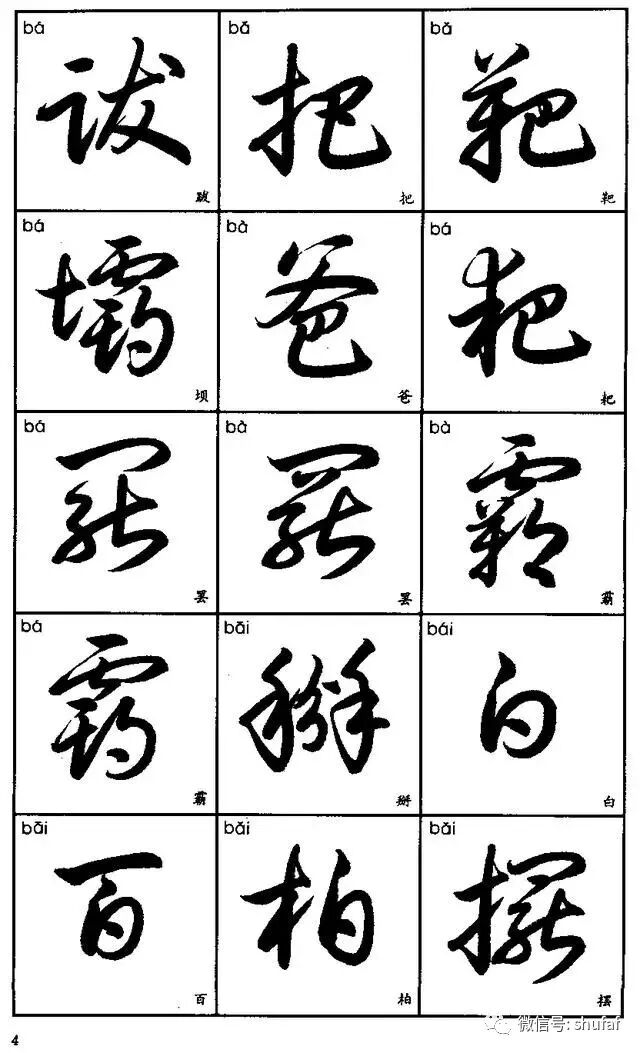 bá bǎ bǎ
跋 把 靶
跋 把 靶
bá bà bá
壩 爸 耙
坝 爸 耙
bá bà bà
罷 罷 霸
罢 罢 霸
bá bāi bái
霸 掰 白
霸 掰 白
bāi bǎi bǎi
百 柏 擺
百 柏 摆
4
微信号: shufaf